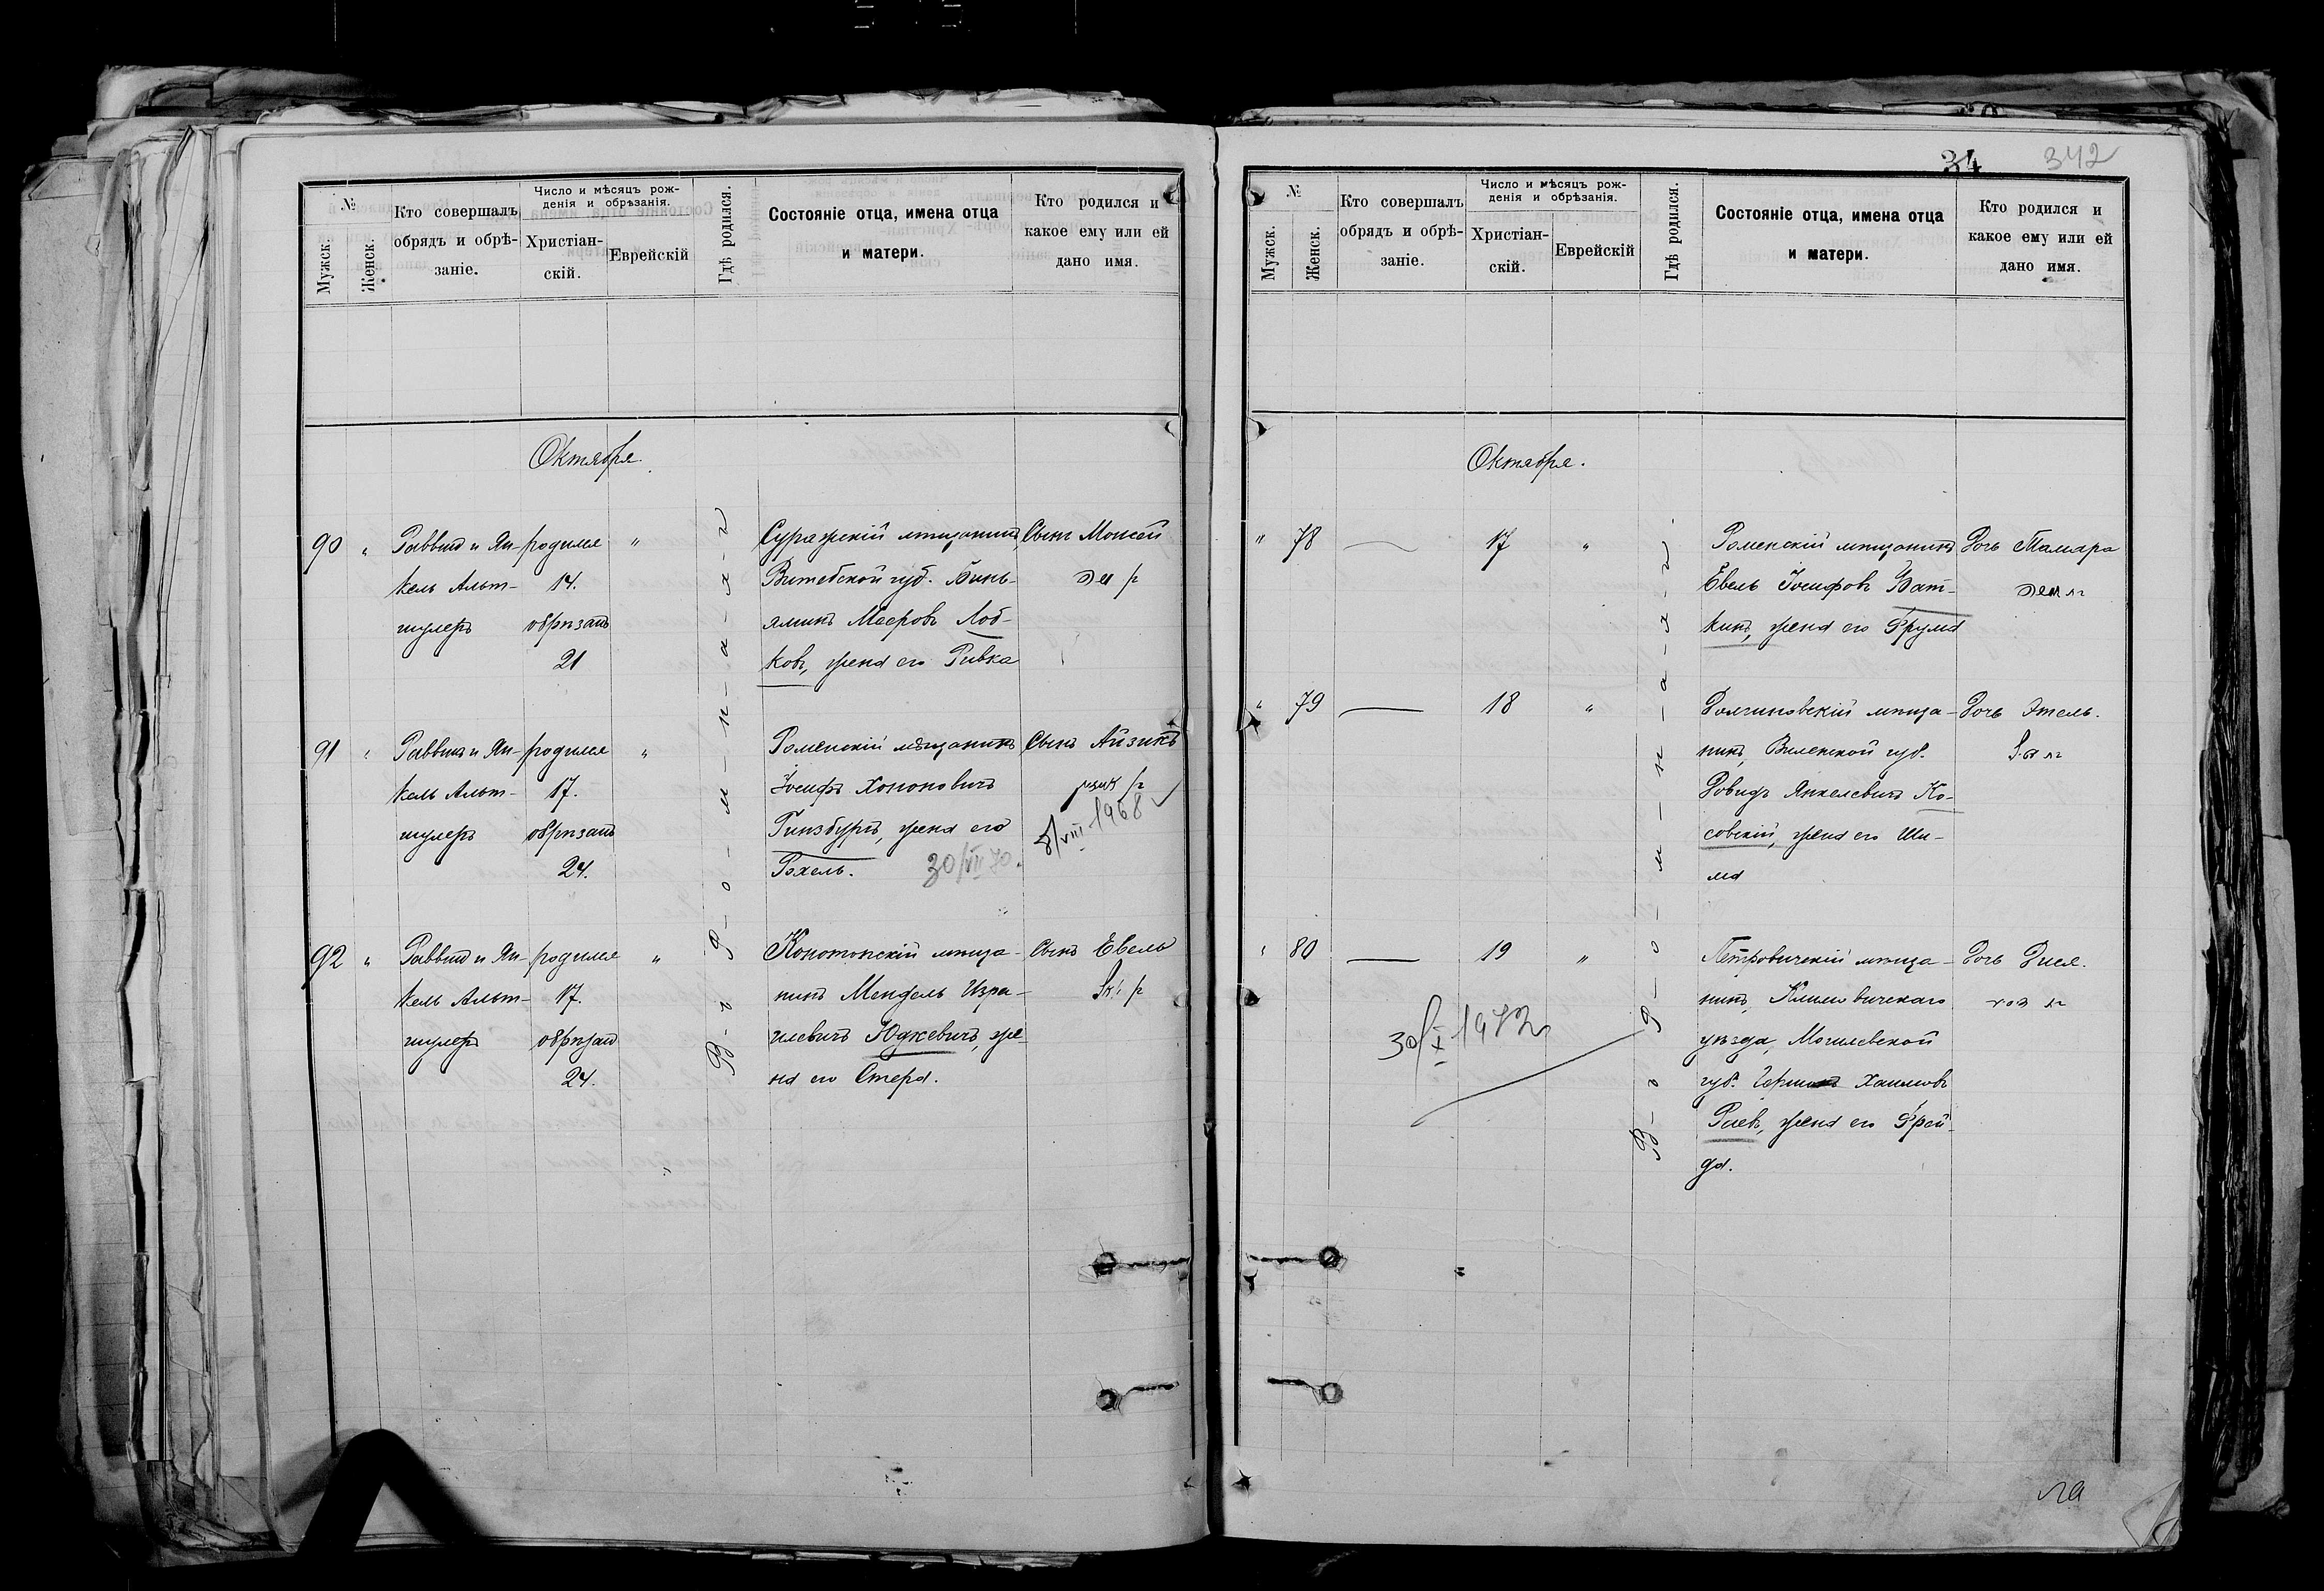 №
Мужск.
Женск.
Кто совершалъ
обрядъ и обрѣ-
заніе.
Число и мѣсяцъ рож-
денія и обрѣзанія.
Христіан-
скій.
Еврейскій
Гдѣ родился.
Состояніе отца, имена отца
и матери.
Кто родился и
какое ему или ей
дано имя.
Октября.
В-г Р-о-м-н-а-х-ъ
90 "
Раввинъ и Ян-
кель Альт-
шулеръ
родился
14.
обрѣзанъ
21
"
Суражскій мѣщанинъ,
Витебской губ. Бинь-
яминъ Мееровъ Лоб-
ковъ, жена его Ривка
Сынъ Моисей
בן משה
91 "
Раввинъ и Ян-
кель Альт-
шулеръ
родился
17.
обрѣзанъ
24.
"
Роменскій мѣщанинъ
Іосифъ Хононовичъ
Гинзбургъ, жена его
Рохель.
30/VII 70.
Сынъ Айзикъ
בן אייזיק
8/VIII 1968
92 "
Раввинъ и Ян-
кель Альт-
шулеръ
родился
17.
обрѣзанъ
24.
"
Конотопскій мѣща-
нинъ Мендель Изра-
илевичъ Юдкевичъ, же-
на его Стера.
Сынъ Евель
34 342
№
Мужск.
Женск.
Кто совершалъ
обрядъ и обрѣ-
заніе.
Число и мѣсяцъ рож-
денія и обрѣзанія.
Христіан-
скій.
Еврейскій
Гдѣ родился.
Состояніе отца, имена отца
и матери.
Кто родился и
какое ему или ей
дано имя.
Октября.
В-г Р-о-м-н-а-х-ъ.
" 78
17
"
Роменскій мѣщанинъ
Евель Іосифовъ Бат-
кинъ, жена его Фрума
Дочь Тамара
" 79
18
"
Долгиновскій мѣща-
нинъ, Виленской губ.
Довидъ Янкелевичъ Ко-
совскій, жена его Ши-
ма
Дочь Этель.
" 80
19
"
30/X 1972
Петровичскій мѣща-
нинъ, Климовичскаго
уѣзда, Могилевской
губ. Хаимовъ
Раевъ, жена его Фрей-
да.
Дочь Эися.